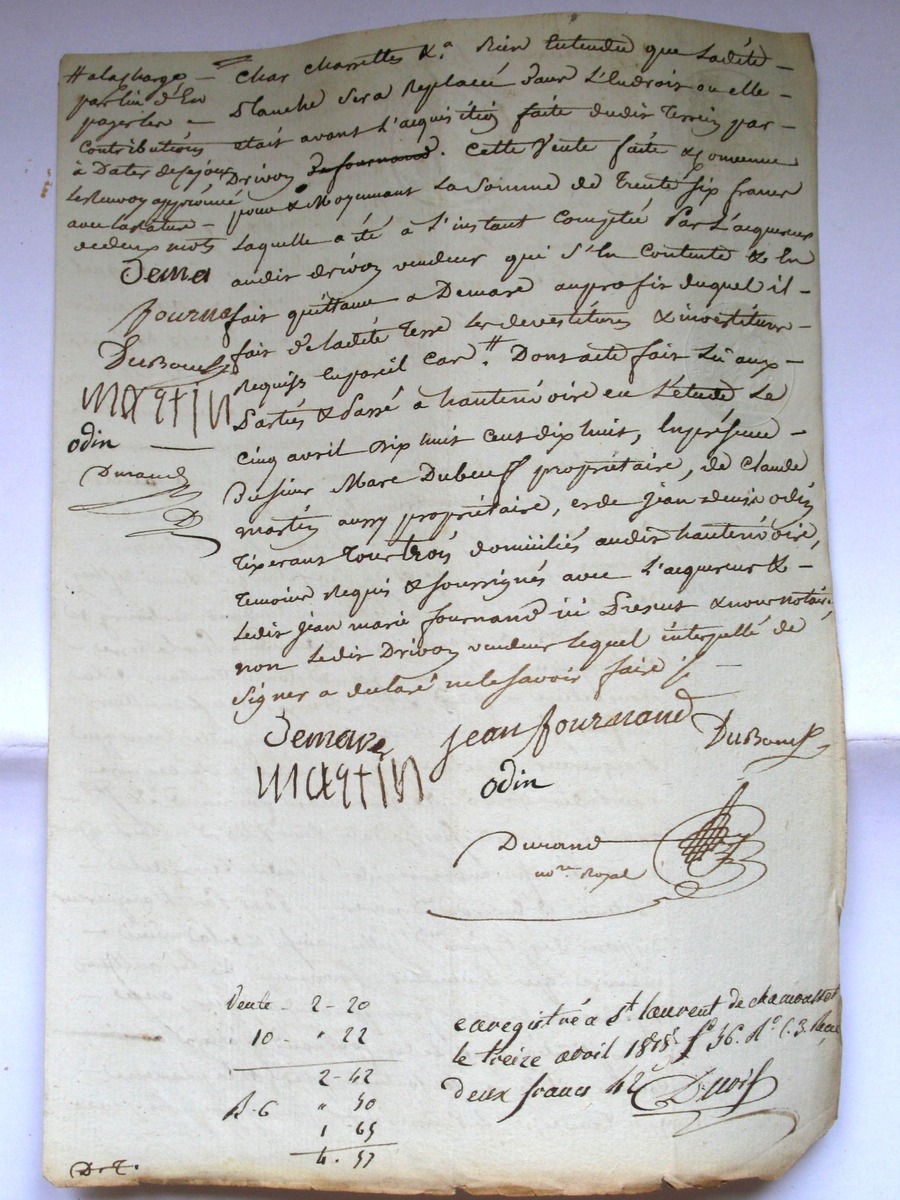 char charrettes &.a Bien Entendu que Ladite -
planche sera Replacée dans L'Endroit ou elle -
était avant L'acquisition faite dudit Terrein par -
Drivon de fournand. Cette Vente faite & convenue
pour & Moyennant La Somme de trente six francs
Laquelle a été à L'instant Comptée Par L'acquereur
audit drivon vendeur qui s'En Contente & En
fait quittance a Demare au profit duquel il -
fait de ladite terre Les devestitures & investitures -
Requises En pareil Cas #. Dont acte fait Lu aux -
Parties & Passé à hauterivoire en L'étude Le
cinq avril dix huit cent dix huit, En présence -
du sieur Marc Dubeuff propriétaire, de Claude
martin aussy propriétaire, et de jean denis odin
Tixerant tous trois domiciliés audit hauterivoire,
témoins Requis & soussignés avec L'acquereur & -
Ledit jean marie fournand ici Present & nous notaire,
non Ledit Drivon vendeur lequel interpellé de
signer a declaré ne le savoir faire ./. -
# a la charge -
par lui d'En
payer les -
Contributions
à Dater de ce jour
Le Renvoy approuvé
avec la rature -
de deux mots
Dema
fourna
DuBoeuff
MARTIN
odin
Durand
D
Demare
jean fournand
DuBoeuff
MARTIN
odin
Durand
no.re Royal
Vente - 2 - 20
10 - " 22
2 - 42
R - 6 " 50
1 65
4 - 57
D.t.
enregistré a St. laurent de chamousset
le treize avril 1818 f.o 36. R.o C. 3. Reçu
deux francs 42 c